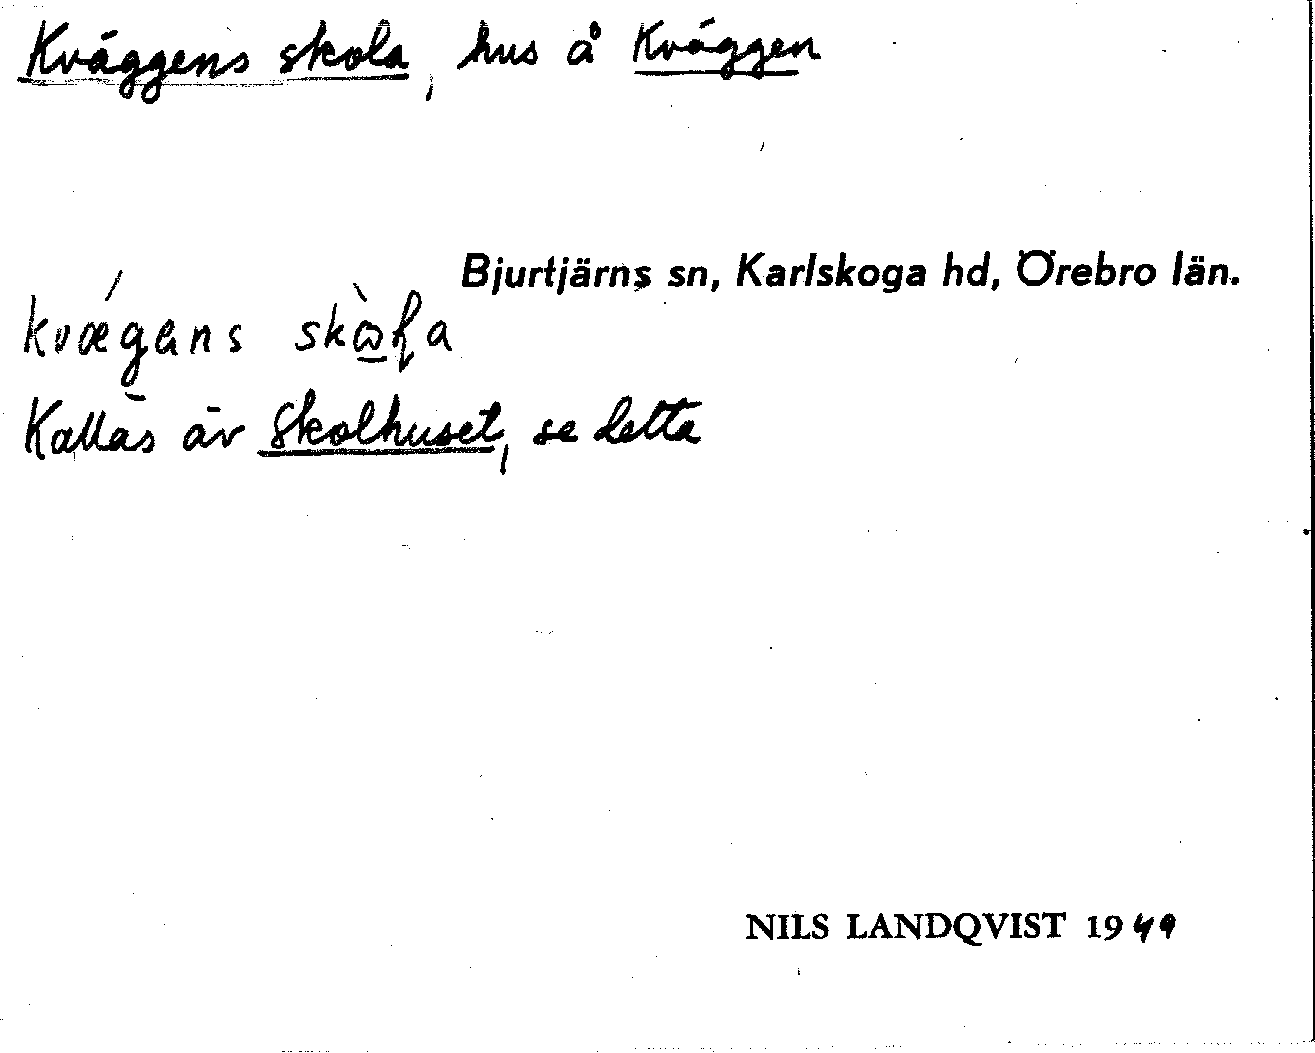 Kväggens skola, hus å Kväggen
Bjurtjärns sn, Karlskoga hd, Örebro län.
kvǽgəns skὼɽa
Kallas äv Skolhuset, se detta
NILS LANDQVIST 1949